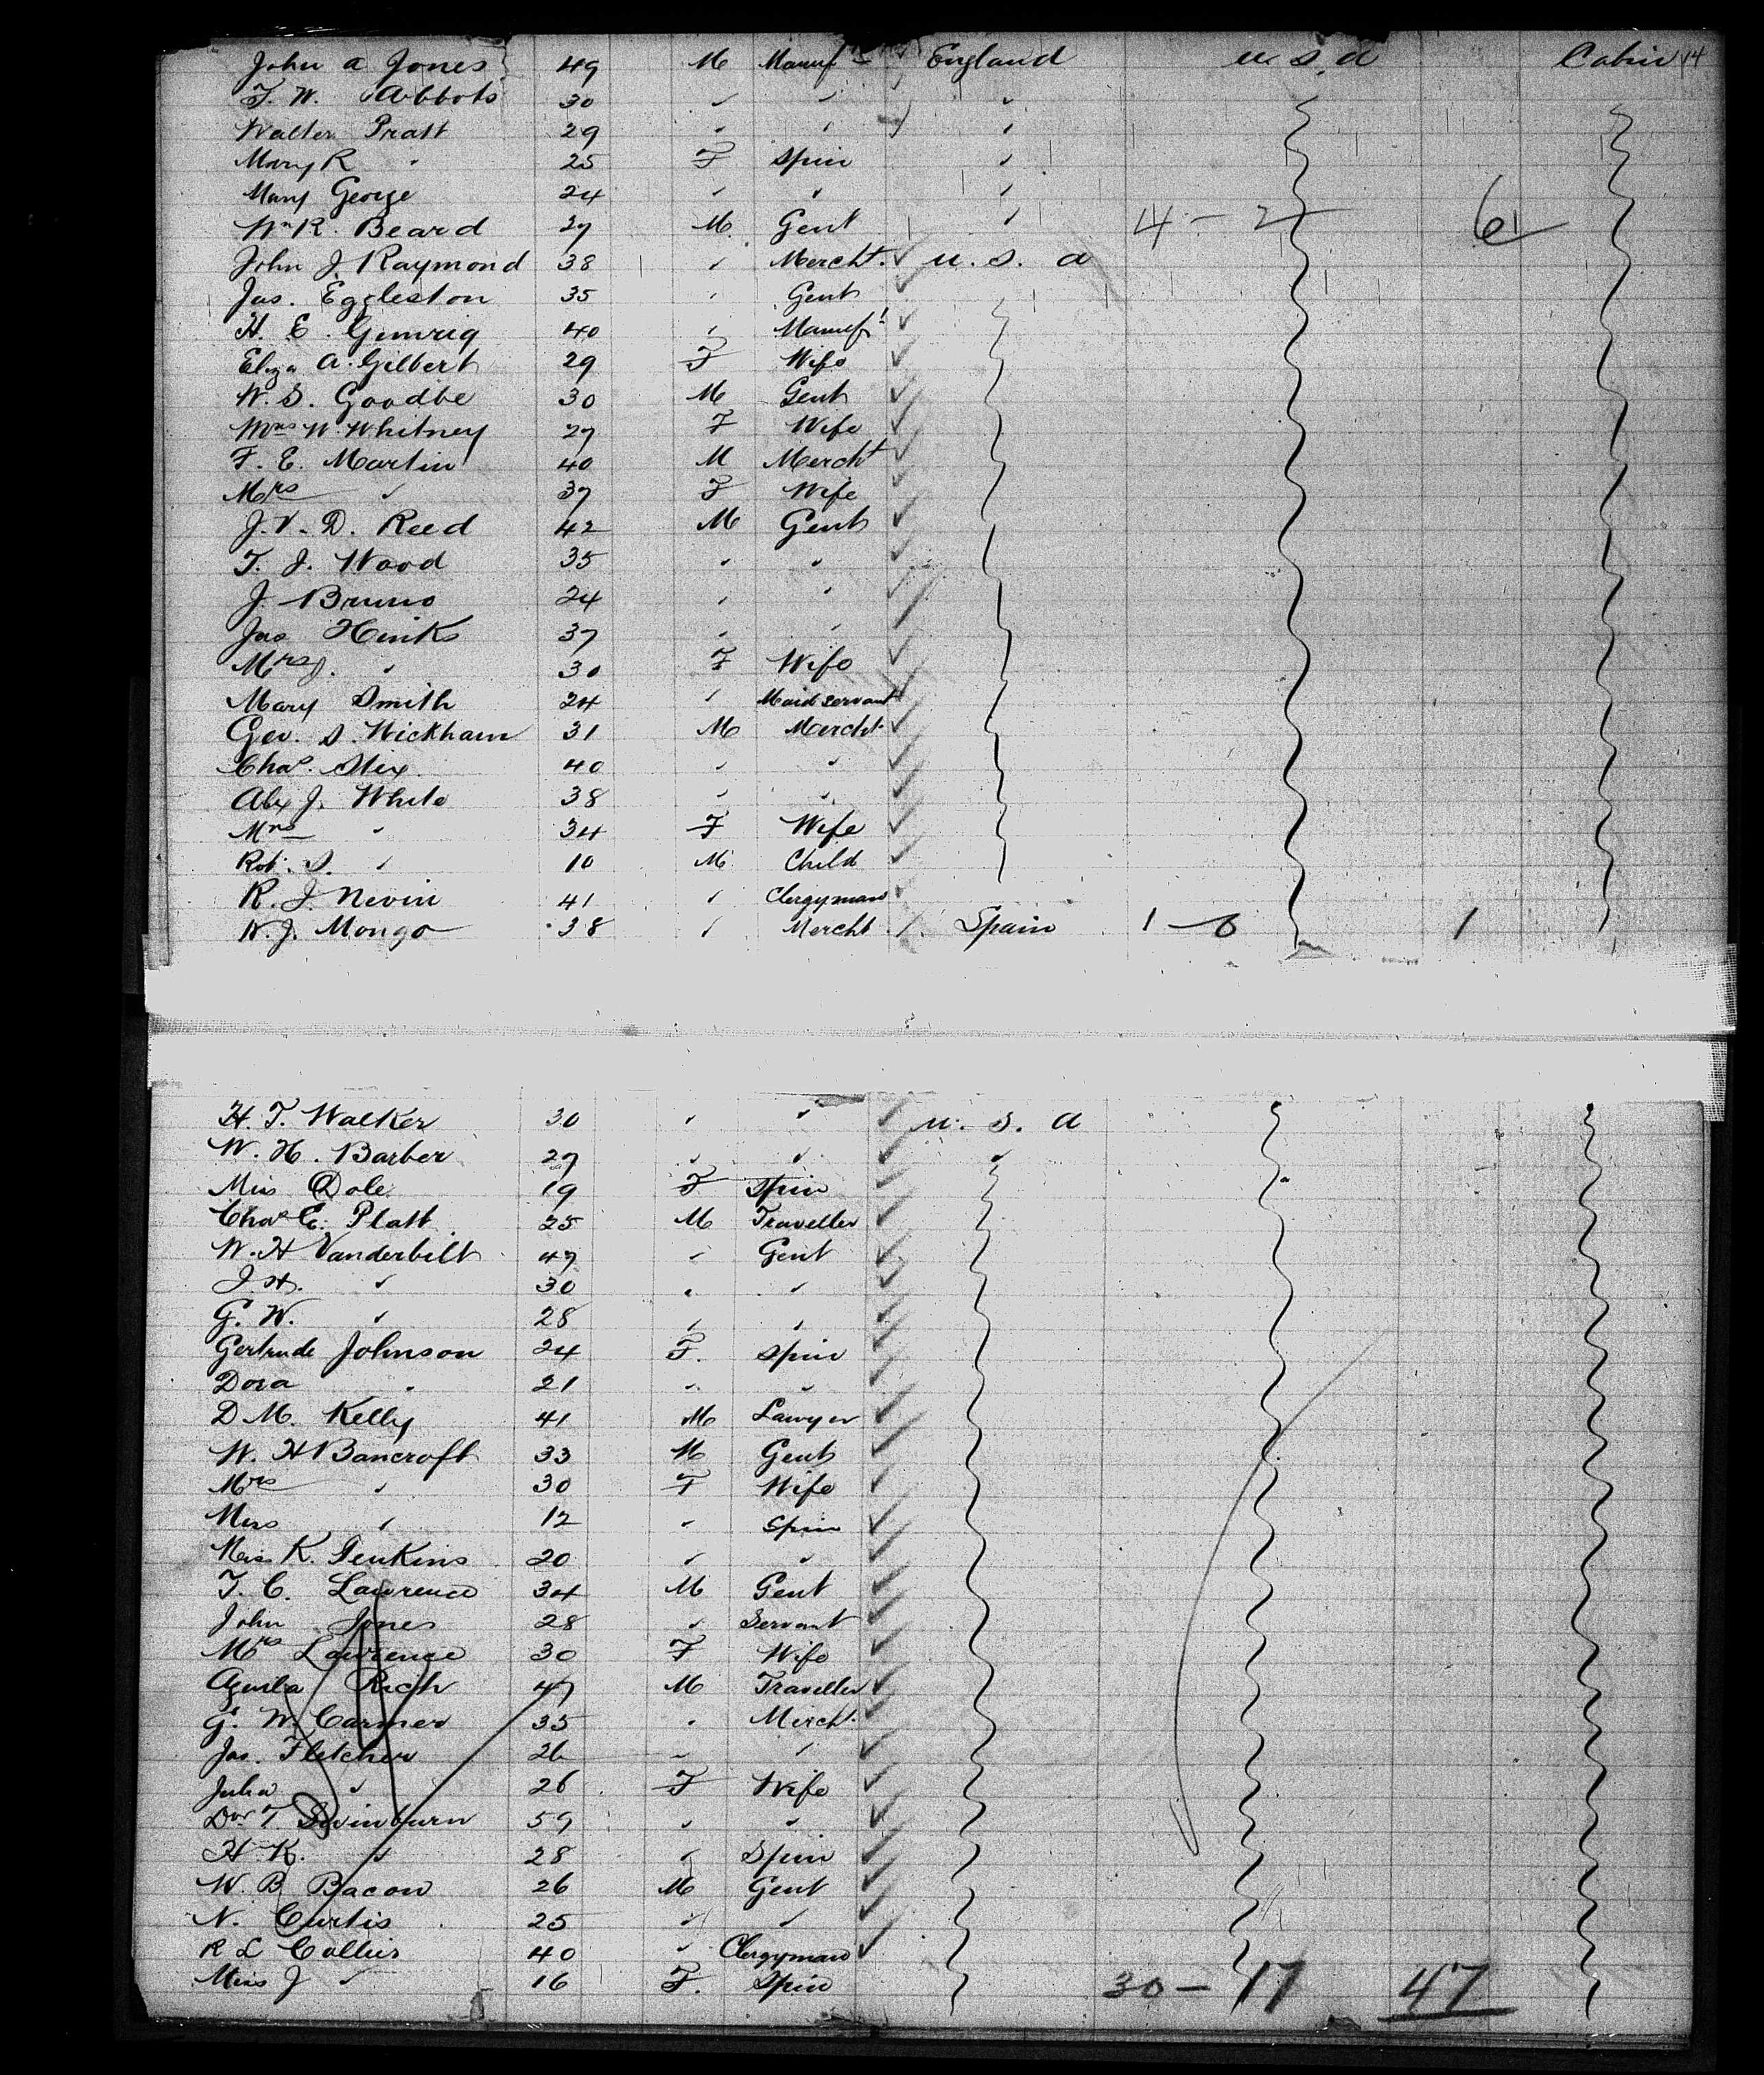 John A Jones 49 M Manuf England U.S.A Cabin 14
T. W. Abbots 30 " " "
Walter Pratt 29 " " "
Mary R " 25 F Spin "
Mary George 24 " " "
Wm R. Beard 27 M. Gent " 4 - 2 6
John J. Raymond 38 " Mercht. U.S.A
Jas. Eggleston 35 " Gent
H. E. 40 " Manuf
Eliza A. Gilbert 29 F Wife
W. S. Goodbe 30 M Gent
Mrs W. Whitney 27 F Wife
F. E. Martin 40 M Mercht
Mrs " 37 F Wife
J. V. D. Reed 42 M Gent
T. J. Wood 35 " "
J. Bruno 24 " "
Jas Hinks 37 " "
Mrs J. " 30 F Wife
Mary Smith 24 " Maid Servant
Geo. S. Wickham 31 M Mercht.
Chas. Stix 40 " "
Alex J. White 38 " "
Mrs " 34 F Wife
Robt. S. " 10 M Child
R. J. Nevin 41 " Clergyman
W. J. Mongo 38 " Mercht Spain 1 - 0 1
H. T. Walker 30 " " U.S.A
W. H. Barber 27 " " "
Miss Dole 19 F Spin
Chas E. Platt 25 M Traveller
W. H Vanderbilt 47 " Gent
J. H. " 30 " "
G. W. " 28 " "
Gertrude Johnson 24 F. Spin
Dora " 21 " "
D M. Kelly 41 M Lawyer
W. H Bancroft 33 M Gent
Mrs " 30 F Wife
Miss " 12 " Spin
Miss K. Jenkins 20 " "
T. C. Lawrence 34 M Gent
John Jones 28 " Servant
Mrs Lawrence 30 F Wife
Aquila Rich 47 M Traveller
G. W. Carmer 35 " Mercht.
Jas. Fletcher 26 " "
Julia " 26 F Wife
T Swinburn 59 " "
H. K. " 28 " Spin
W. B Bacon 26 M Gent
N. Curtis 25 " "
R L Collier 40 " Clergyman
Miss J " 16 F. Spin 30 - 17 47